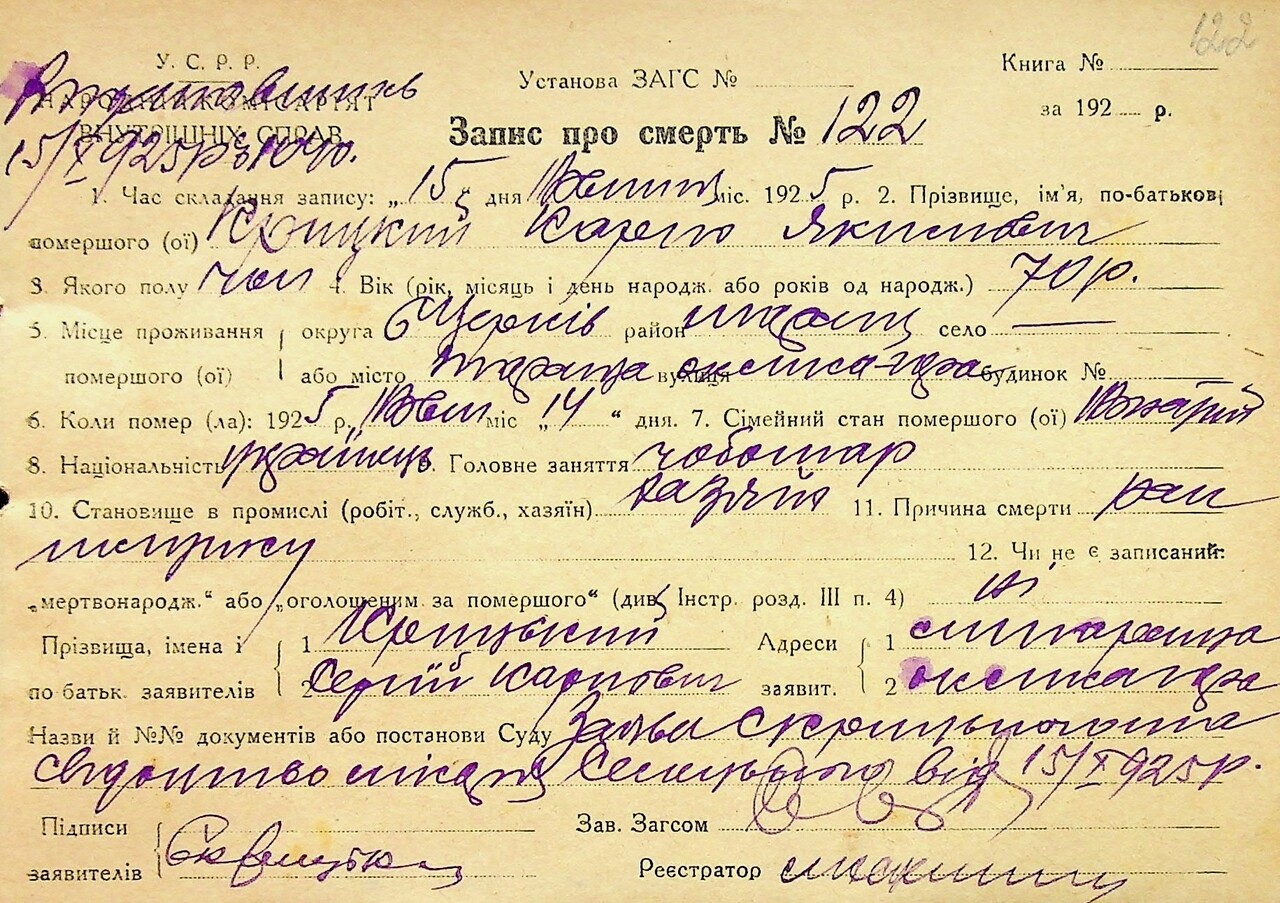 122
У. С. Р. Р.
НАРОДНИЙ КОМІСАРІЯТ
ВНУТРІШНІХ СПРАВ
15/X 925р
Установа ЗАГС №
Книга №
за 192 р.
Запис про смерть № 122
1. Час складання запису: „15" дня Жовтня міс. 1925 р. 2. Прізвище, ім'я, по-батькові
помершого (ої) Крицкий Карпо Якимович
3. Якого полу чол 4. Вік (рік, місяць і день народж. або років од народж.) 70 р.
5. Місце проживання округа БЦерків район таращ село —
помершого (ої) або місто Тараща вулиця будинок №
6. Коли помер (ла): 1925 р. Жовт міс „14" дня. 7. Сімейний стан помершого (ої) Жонатий
8. Національність українець 9. Головне заняття чоботар
10. Становище в промислі (робіт., служб., хазяїн) хазяїн 11. Причина смерти рак
шлунку 12. Чи не є записаний:
„мертвонародж." або „оголошеним за помершого" (див. Інстр. розд. III п. 4) ні
Прізвища, імена і 1 Крицький Адреси 1 м тараща
по батьк. заявителів 2 Сергій Карпович заявит. 2
Назви й №№ документів або постанови Суду Заява Крицького та
свідоцтво лікаря від 15/X 925 р.
Підписи Зав. Загсом
заявителів Реєстратор